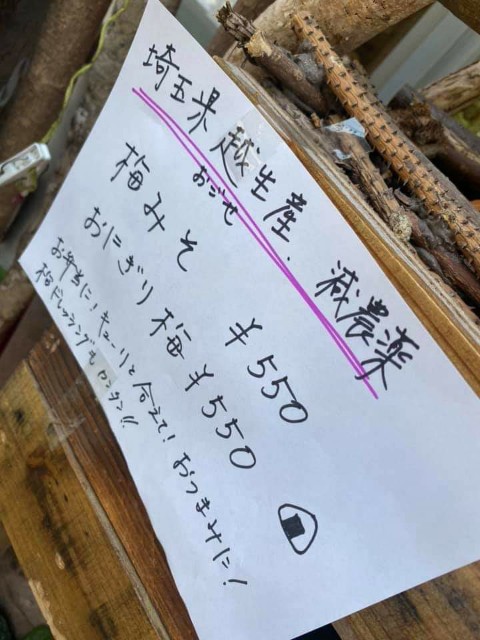 埼玉県 越生産、減農薬
おごせ
梅みそ ¥550
おにぎり梅 ¥550
お弁当に!キューリと合えて!おつまみに!
梅ドレッシングもカンタン!!